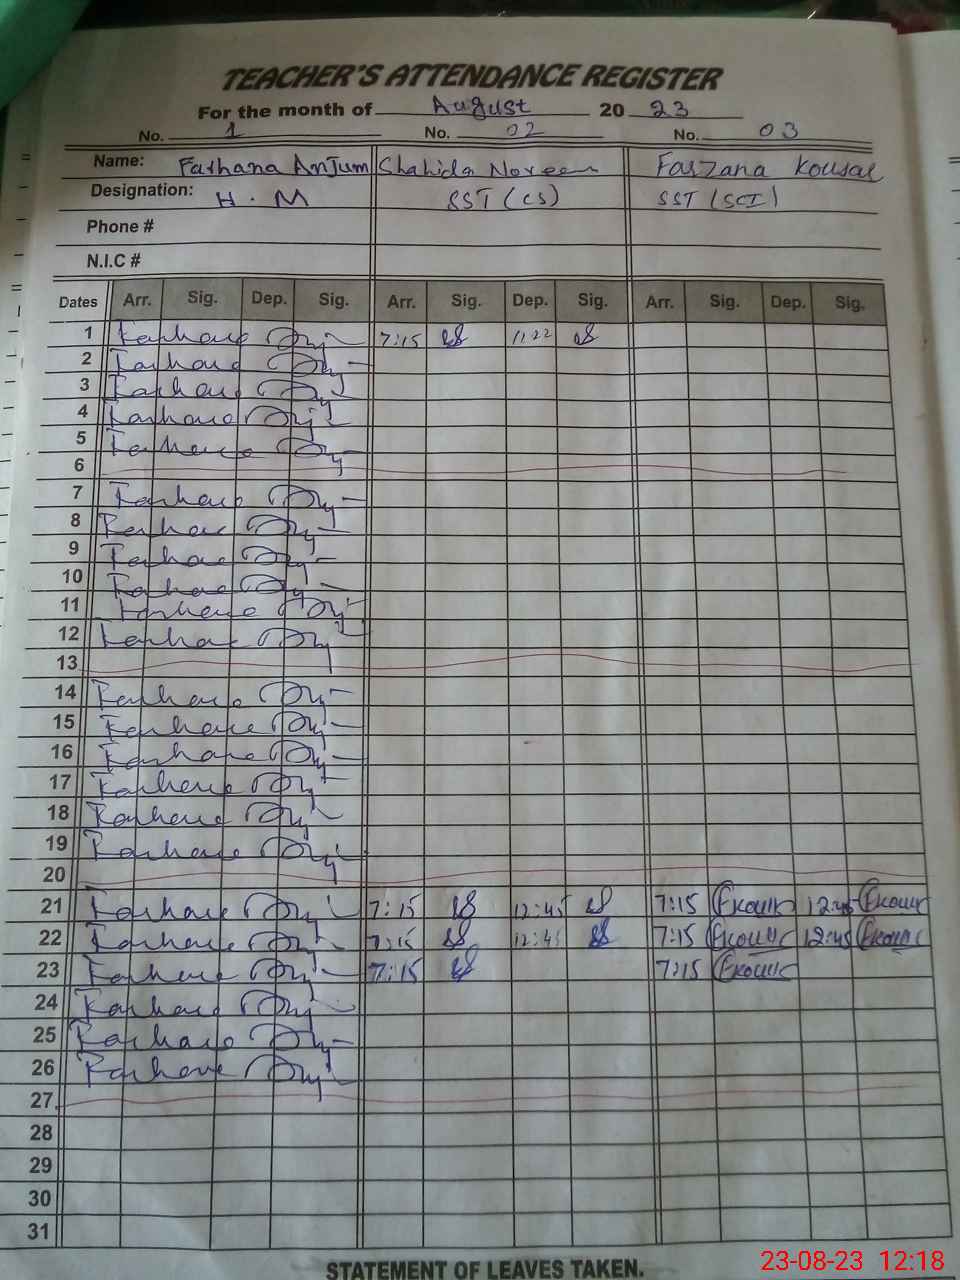 TEACHER'S ATTENDANCE REGISTER
For the month of August 20 23
No. 1 No. 02 No. 03
Name: Farhana Anjum Shahida Noreen Farzana Kousar
Designation: H.M SST (CS) SST (SCI)
Phone #
N.I.C #
Dates Arr. Sig. Dep. Sig. Arr. Sig. Dep. Sig. Arr. Sig. Dep. Sig.
1 Farhana Anj 7:15 11:22
2 Farhana Anj
3 Farhana Anj
4 Farhana Anj
5 Farhana Anj
6
7 Farhana Anj
8 Farhana Anj
9 Farhana Anj
10 Farhana Anj
11 Farhana Anj
12 Farhana Anj
13
14 Farhana Anj
15 Farhana Anj
16 Farhana Anj
17 Farhana Anj
18 Farhana Anj
19 Farhana Anj
20
21 Farhana Anj 7:15 12:45 7:15 Fkousr 12:45 Fkousr
22 Farhana Anj 7:15 12:45 7:15 Fkousr 12:45 Fkousr
23 Farhana Anj 7:15 7:15 Fkousr
24 Farhana Anj
25 Farhana Anj
26 Farhana Anj
27
28
29
30
31
STATEMENT OF LEAVES TAKEN.
23-08-23 12:18